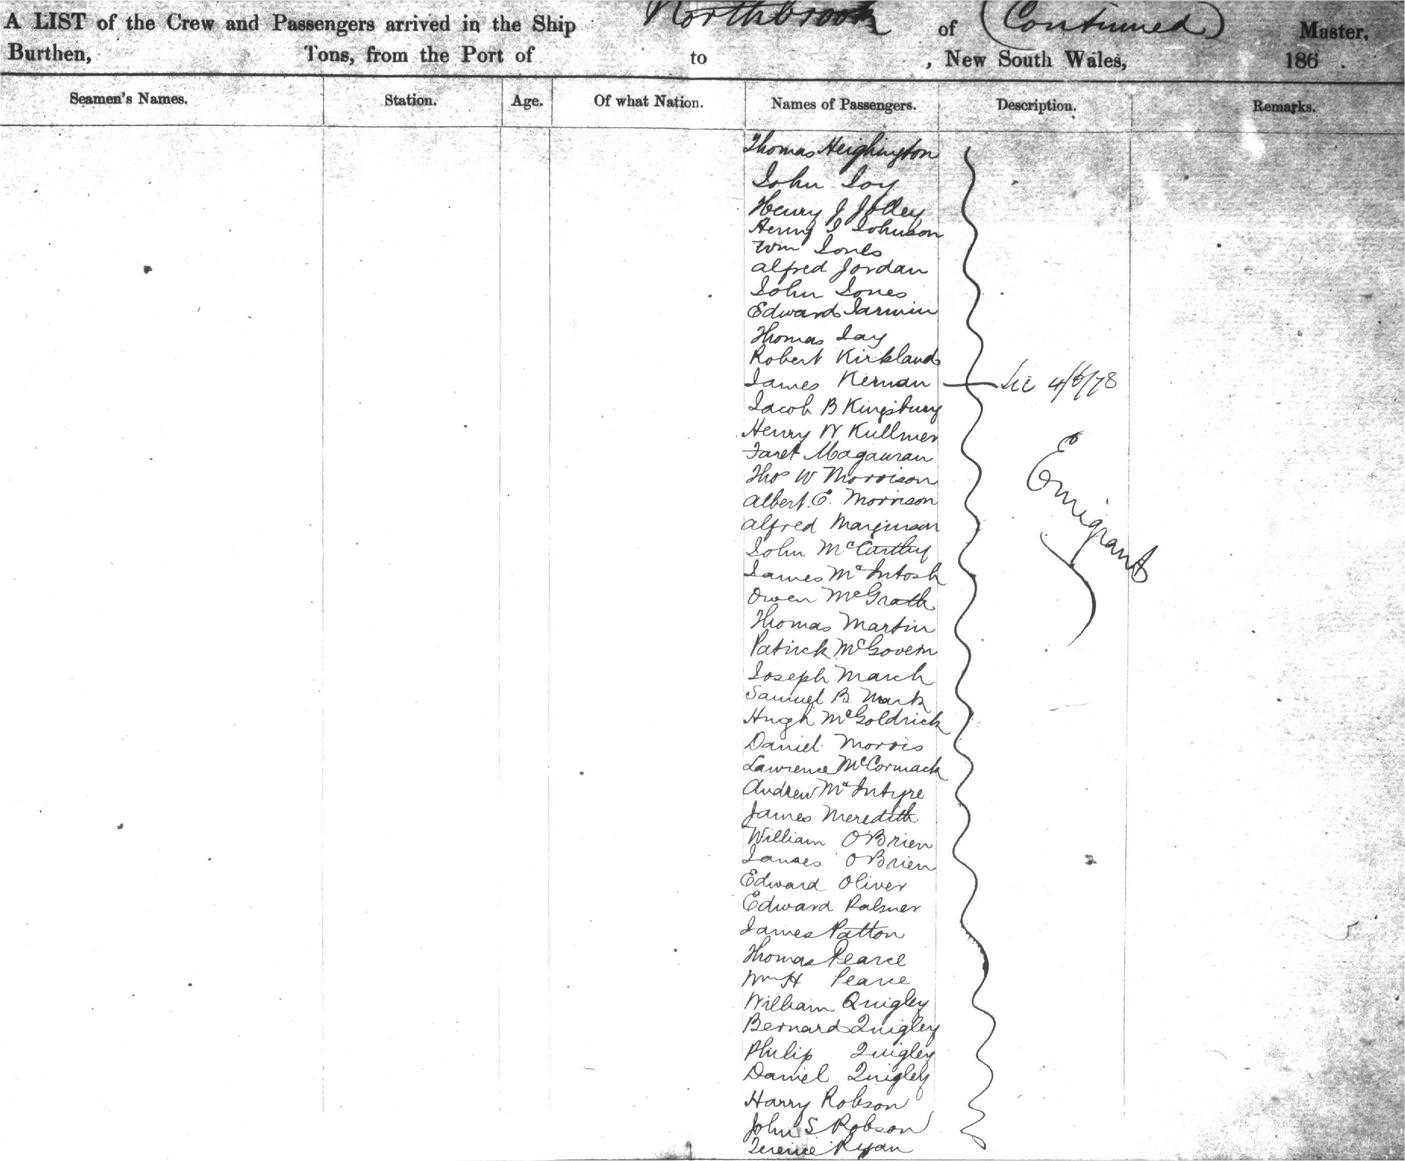 A LIST of the Crew and Passengers arrived in the Ship Northbrook of (Continued) Master,
Burthen, Tons, from the Port of to , New South Wales, 186 .
Seamen's Names. Station. Age. Of what Nation. Names of Passengers. Description. Remarks.
Thomas Heighington
John Joy
Henry J Jolley
Henry J Johnson
Wm Jones
Alfred Jordan
John Jones
Edward Jarmin
Thomas Jay
Robert Kirkland
James Kernan 4/6/78
Jacob B Kingsbury
Henry W Kullmer
Magauran
Thos W Morrison
Albert E. Morrison
Alfred
John McCarthy
James McIntosh
Owen McGrath
Thomas Martin
Patrick McGovern
Joseph March
Samuel B Mark
Hugh McGoldrick
Daniel Morris
Lawrence McCormack
Andrew McIntyre
James Meredith
William O'Brien
James O'Brien
Edward Oliver
Edward Palmer
James Patton
Thomas Pearce
Wm H Pearce
William Quigley
Bernard Quigley
Philip Quigley
Daniel Quigley
Harry Robson
John S Robson
Terence Ryan
Emigrants